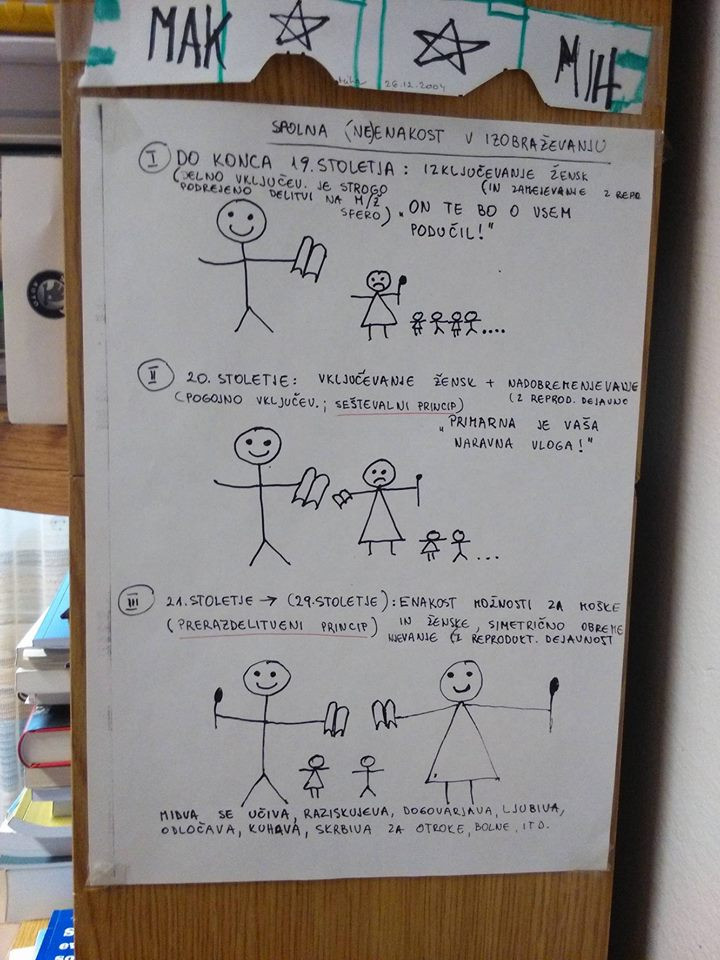 MAK
MIH
26.12.2004
SPOLNA (NE)ENAKOST V IZOBRAŽEVANJU
I DO KONCA 19. STOLETJA : IZKLJUČEVANJE ŽENSK
(DELNO VKLJUČEV. JE STROGO (IN ZAMEJEVANJE Z REPR.
PODREJENO DELITVI NA M/Ž
SFERO) „ON TE BO O VSEM
PODUČIL!"
....
II 20. STOLETJE: VKLJUČEVANJE ŽENSK + NADOBREMENJEVANJE
(POGOJNO VKLJUČEV.; SEŠTEVALNI PRINCIP) (Z REPROD. DEJAVNO
„PRIMARNA JE VAŠA
NARAVNA VLOGA!"
...
III 21. STOLETJE → (29. STOLETJE) : ENAKOST MOŽNOSTI ZA MOŠKE
(PRERAZDELITVENI PRINCIP) IN ŽENSKE, SIMETRIČNO OBREME
NJEVANJE (Z REPRODUKT. DEJAVNOST
MIDVA SE UČIVA, RAZISKUJEVA, DOGOVARJAVA, LJUBIVA,
ODLOČAVA, KUHAVA, SKRBIVA ZA OTROKE, BOLNE, ITD.